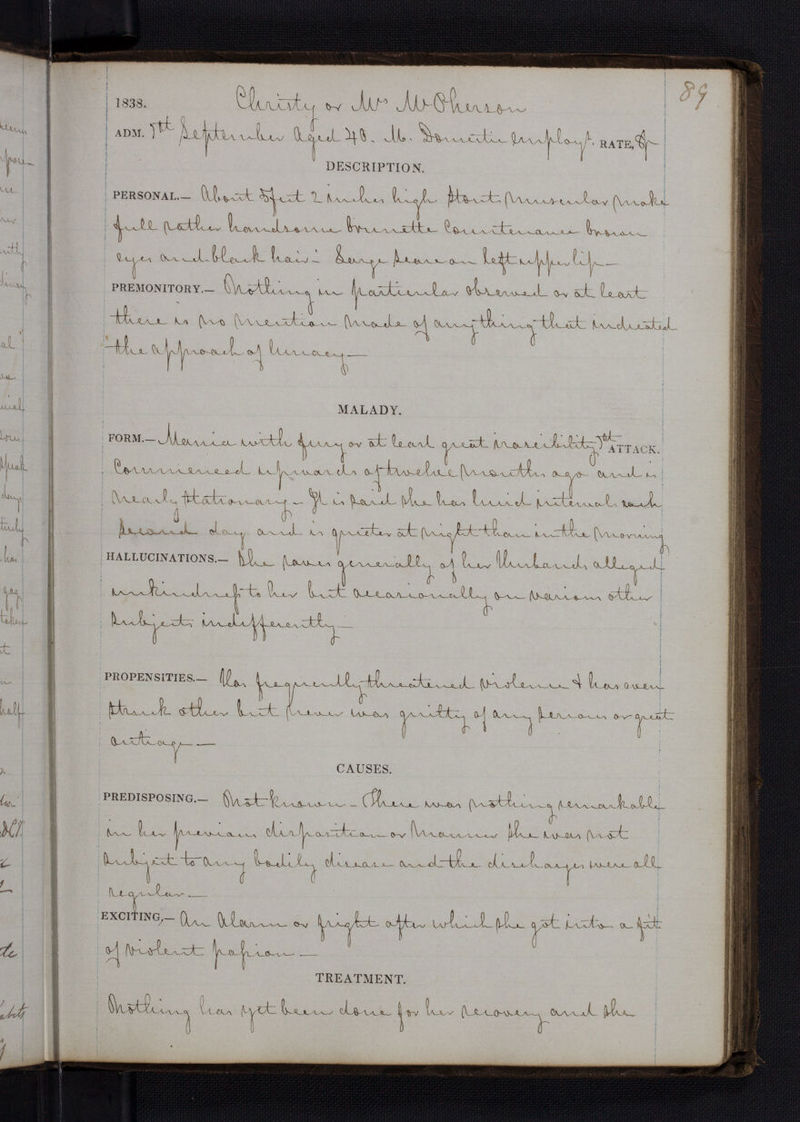 89
1838. Christy or Mrs McPherson
ADM. 7th September Aged 40. M. Domestic Employt. RATE,
DESCRIPTION.
PERSONAL.— About 5 feet 2 inches high stout muscular make
full rather handsome brunette Countenance brown
eyes and black hair - Large scar on left upper lip —
PREMONITORY.— Nothing in particular observed or at least
there is no mention made of any thing that indicated
the approach of lunacy —
MALADY.
FORM.— Mania with fury or at least great irascibility ATTACK.
Commenced upwards of twelve months ago and is
nearly stationary - It is said she has lucid intervals each
second day and is quieter at night than in the morning
HALLUCINATIONS.— She raves generally of her Husbands alleged
unkindness to her but occasionally on various other
subjects indifferently —
PROPENSITIES.— Has frequently threatened violence & has even
struck other but never was guilty of any serious or great
outrage —
CAUSES.
PREDISPOSING.— Not known - There was nothing remarkable
in her previous disposition or manner She was not
subject to any bodily disease and the discharges were all
regular —
EXCITING,— An Alarm or fright after which she got into a fit
of violent passion —
TREATMENT.
Nothing has yet been done for her recovery and she